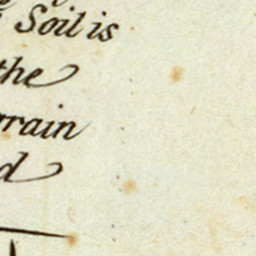 Soil is
the
rrain
d